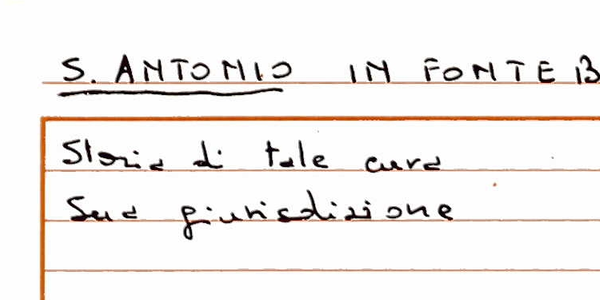 S. ANTONIO IN FONTE B
Storia di tale cura
Sua giurisdizione